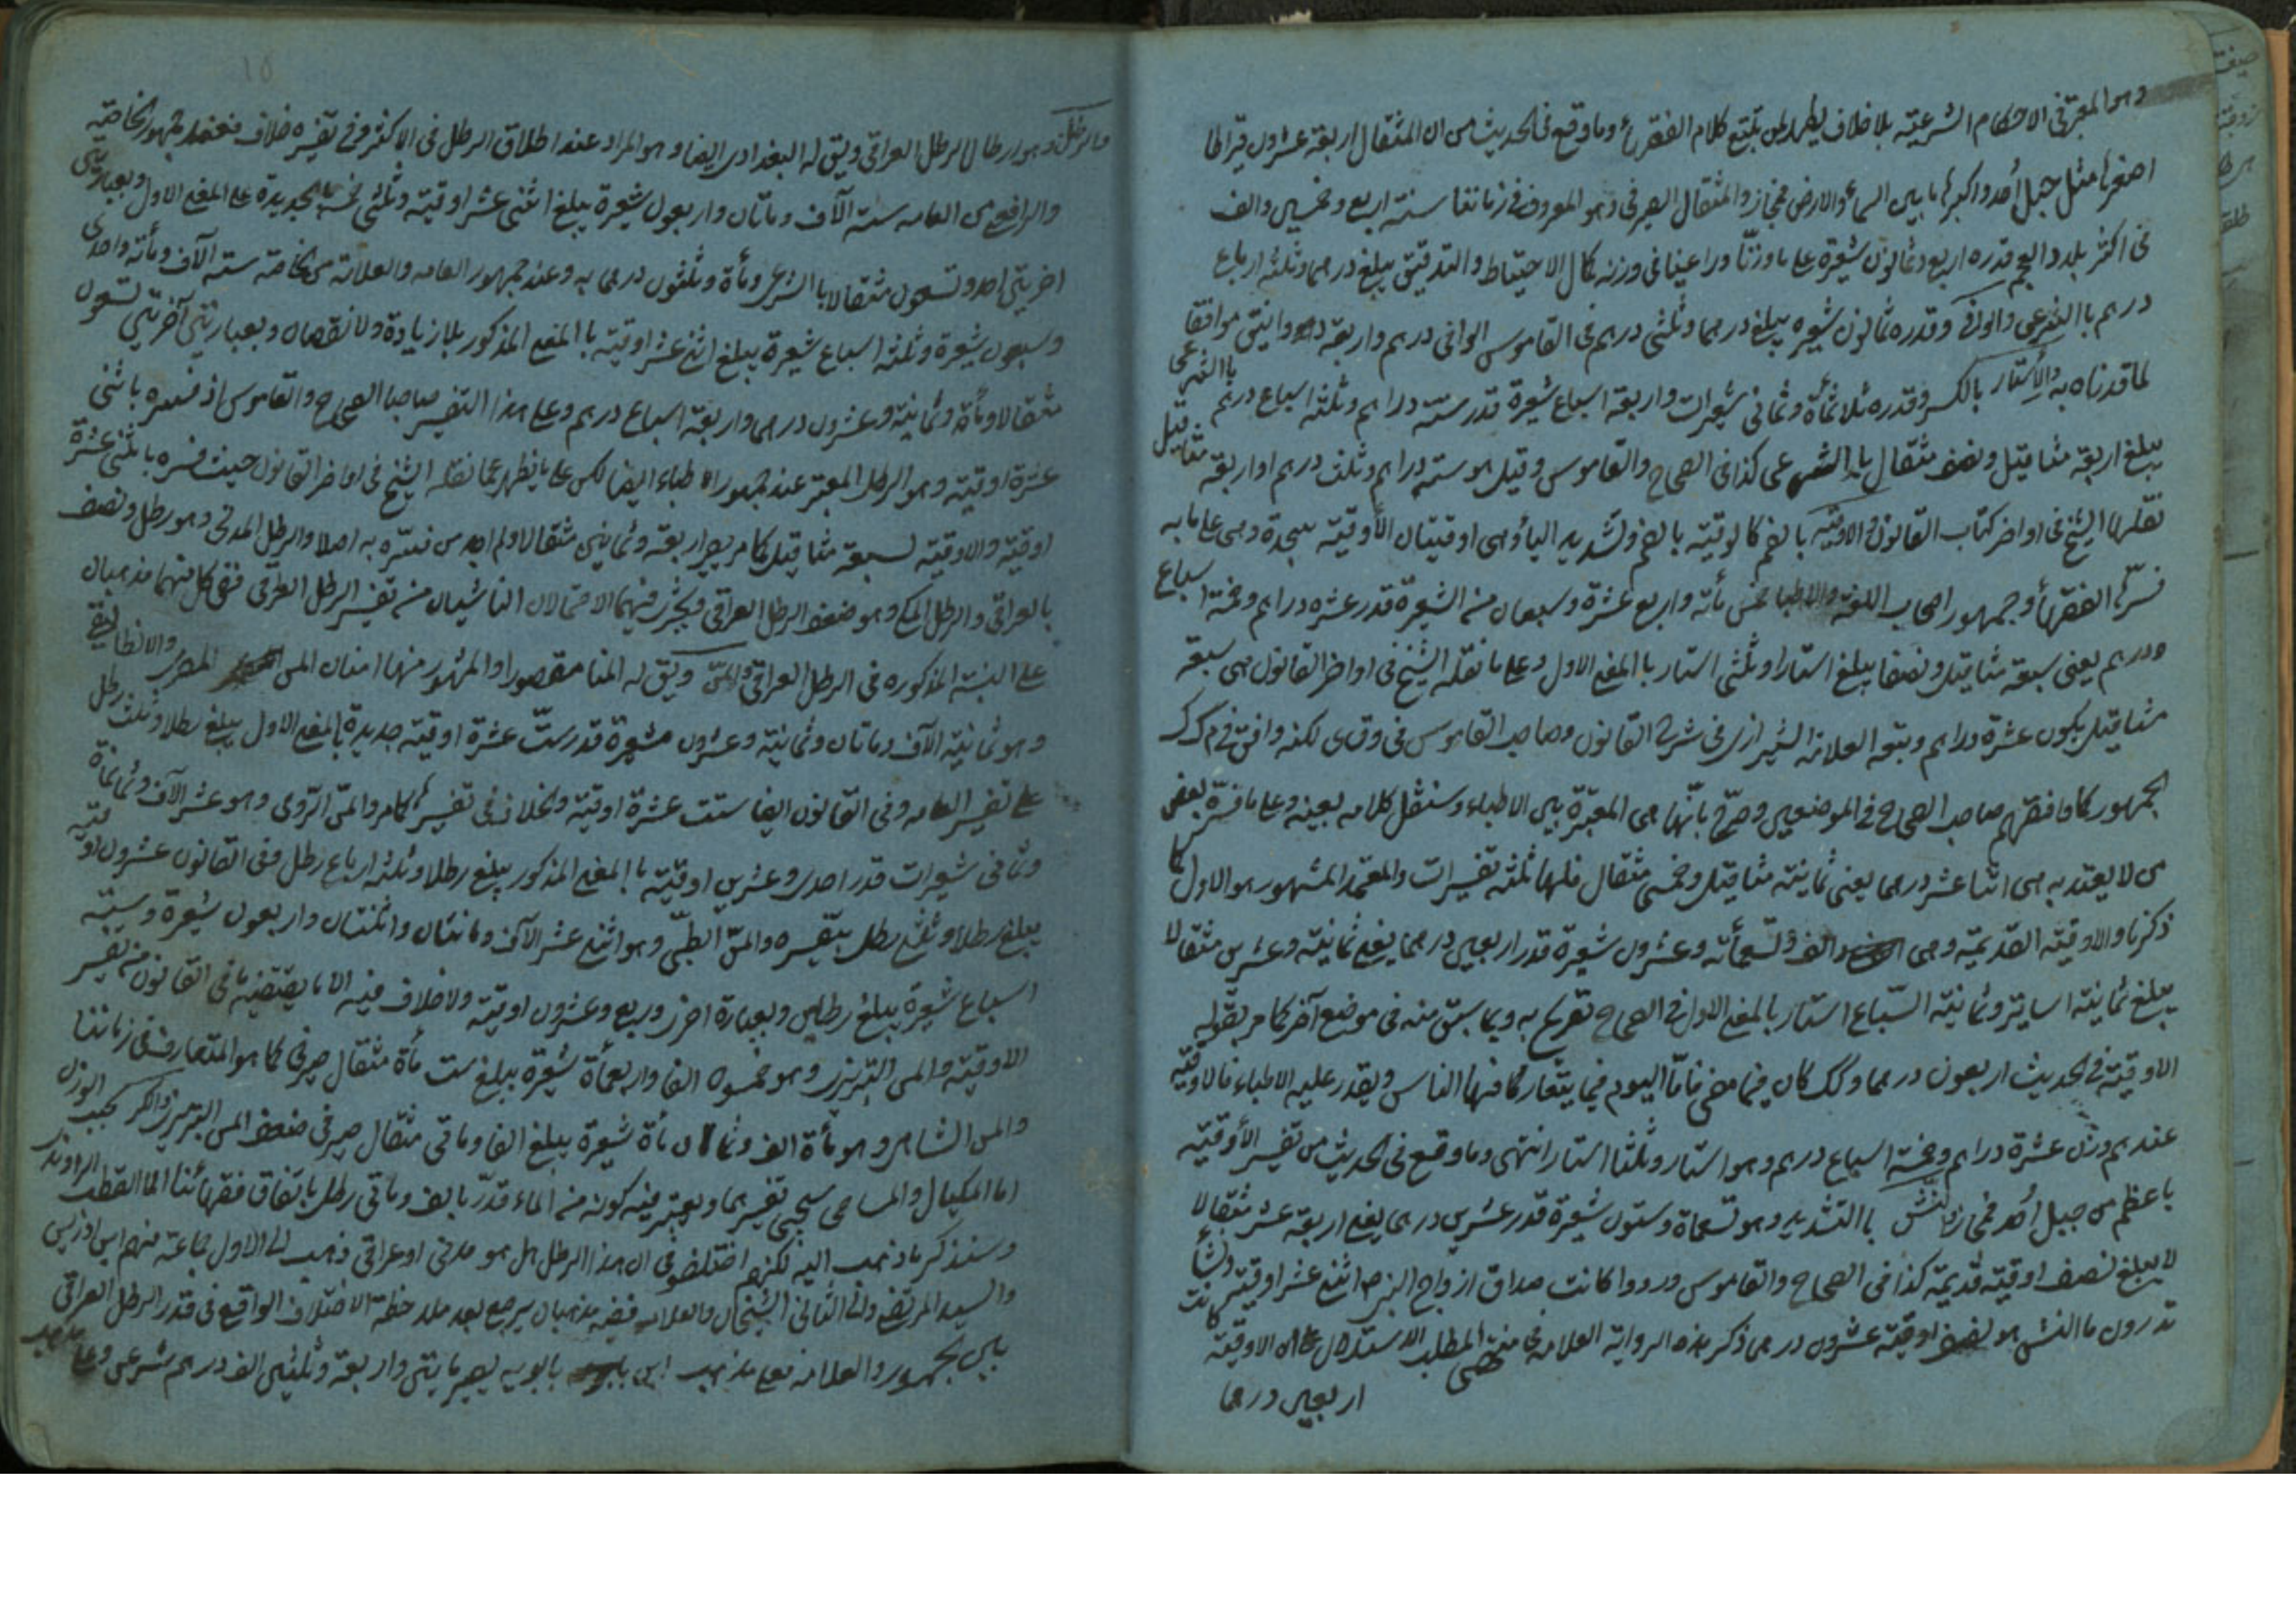 وهو المعتبر فى الاحكام الشرعيّة بلا خلاف يظهر لمن يتبّع كلام الفقهاء وما وقع فى الحديث من ان المثقال اربعة عشرون قيراطا
اصغرها مثل جبل أُحد واكبرها ما بين السماء والارض فمجاز والمثقال الصيرفى وهو المعروف فى زماننا سنة اربع وخمسين والف
فى اكثر بلاد العجم قدره اربع وثمانون شعيرة على ما وزنّا وراعينا فى وزنه كمال الاحتياط والتدقيق يبلغ درهما وثلثة ارباع
درهم بالشرعى والوافى وقدره ثمانون شعيره يبلغ درهما وثلثى درهم فى القاموس الوافى درهم واربعة دوانيق موافقا
لما قدرناه به والإستار بالكسر وقدره ثلاثمأة وثمانى شعيرات واربعة اسباع شعيرة قدر ستّة دراهم وثلثة اسباع درهم بالشرعى
يبلغ اربعة مثاقيل ونصف مثقال بالشرعى كذا فى الصحاح والقاموس وقيل هو سته دراهم وثلث درهم او اربعة مثاقيل
نقلهما الشيخ فى اواخر كتاب القانون والاوقيّه بالضم كالوقيّة بالضم وتشديد الياء وهى اوقيتان الأوقيّة الجديدة وهى على ما به
فسّرها الفقهاء وجمهور اصحاب اللغة والاطباء خمس مأته واربع عشرة وسبعان من الشعيرة قدر عشره دراهم وخمسة اسباع
درهم يعنى سبعة مثاقيل ونصفا يبلغ استارا وثلثى استار بالمعنى الاول وعلى ما نقله الشيخ فى اواخر القانون هى سبعة
مثاقيل يكون عشرة دراهم وتبعه العلامة الشيرازى فى شرح القانون وصاحب القاموس فى وق ى لكنه وافق فى م ك ك
الجمهور كما وافقهم صاحب الصحاح فى الموضعين وصرّح بانّها هى المعتبرة بين الاطباء وسننقل كلامه بعينه وعلى ما فسّره بعض
من لا يعتد به هى اثنا عشر درهما يعنى ثمانية مثاقيل وخمسى مثقال فلها ثلثة تفسيرات والمعتمد المشهور هو الاول كما
ذكرنا والاوقيّة القديمّة وهى الف وتسعمأته وعشرون شعيرة قدر اربعين درهما يعنى ثمانية وعشرين مثقالا
يبلغ ثمانية اساتير وثمانية اتساع استار بالمعنى الاول فى الصحاح تصريح به وبما سبق منه فى موضع آخر كما مر بقوله
الاوقيّة فى الحديث اربعون درهما وكذلك كان فيما مضى فامّا اليوم فيما يتعارفها الناس ويقدر عليه الاطباء فالاوقيّة
عندهم وزن عشرة دراهم وخمسة اسباع درهم وهو استار وثلثا استار انتهى وما وقع فى الحديث من تفسير الأوقيّة
باعظم من جبل أُحد فمجاز والنّشّ بالتشديد وهو تسعمأة وستون شعيرة قدر عشرين درهما يعنى اربعة عشر مثقالا
لا يبلغ نصف اوقيّة قديمة كذا فى الصحاح والقاموس ورووا كانت صداق ازواج النبى ص اثنى عشر اوقية ونشّا
تدرون ما النش هو نصف اوقيّة عشرون درهما ذكر هذه الرواية العلامة فى منتهى المطلب للاستدلال على ان الاوقيّة
اربعين درهما
١٥
والرطل وهو ارطال الرطل العراقى ويق له البغدادى ايضا وهو المراد عند اطلاق الرطل فى الاكثر وفى تفسيره خلاف فعند جمهور الخاصّة
والرافعى من العامه ستة آلاف ومأتان واربعون شعيرة يبلغ اثنى عشر اوقيّة وثلثى خمسها الجديدة على المعنى الاول وبعبارتين
اخريين احد وتسعون مثقالا بالشرعى ومأة وثلثون درهما به وعند جمهور العامه والعلامة من الخاصّة سته آلاف ومأته واحدى
وسبعون شعيرة وثلثه اسباع شعيرة يبلغ اثنى عشر اوقيّة بالمعنى المذكور بلا زيادة ولا نقصان وبعبارتين آخرتين تسعون
مثقالا ومأة وثمانية وعشرون درهما واربعة اسباع درهم وعلى هذا التفسير صاحبا الصحاح والقاموس اذ فسره باثنى
عشرة اوقيّة وهو الرطل المعتبر عند جمهور الاطباء ايضا لكن على ما يظهر مما نقله الشيخ فى اواخر القانون حيث فسره باثنى عشرة
اوقيّة والاوقيّة بسبعة مثاقيل كما مر يصير اربعة وثمانين مثقالا ولم اجد من فسّره به اصلا والرطل المدنى وهو رطل ونصف
بالعراقى والرطل المكى وهو ضعف الرطل العراقى ويجرى فيهما الاحتمالان الناشيان من تفسير الرطل العراقى ففى كل منهما مذهبان
على النسبة المذكوره فى الرطل العراقى والمنّ ويق له المنا مقصورا والمشهور منها امنان المن المصرى والانطاليقى
وهو ثمانية آلاف ومأتان وثمانية وعشرون شعيرة قدر ستّ عشرة اوقيّة جديدة بالمعنى الاول يبلغ رطلا وثلث رطل
على تفسير العامه وفى القانون ايضا ستت عشرة اوقيّة والخلاف فى تفسيرها كما مر والمنّ الرّومى وهو عشر آلاف وثمانمأة
وثمانى شعيرات قدر احدى وعشرين اوقيّة بالمعنى المذكور يبلغ رطلا وثلثة ارباع رطل وفى القانون عشرون اوقيّه
يبلغ رطلا وثلثى رطل بتفسيره والمنّ الطبّى وهو اثنى عشر الآف ومأتان واثنتان واربعون شعيرة وستّة
اسباع شعيرة يبلغ رطلين وبعبارة اخرى اربع وعشرون اوقيّة ولا خلاف فيه الا ما يقتضيه ما فى القانون من تفسير
الاوقيّة والمن التبريزى وهو خمسون الفا واربعمأة شعيرة يبلغ ست مأة مثقال صيرفى كما هو المتعارف فى زماننا
والمن الشاهى وهو مأة الف وثمان مأة شعيرة يبلغ الفا ومأتى مثقال صيرفى ضعف المن التبريزى والكر بحسب الوزن
اما المكيال والمساحى سيجئ تفسيرهما ويعتبر فيه كونه من الماء قدّر بالف ومأتى رطل باتفاق فقهائنا الا القطب الراوندى
وسنذكر ما ذهب اليه لكنهم اختلفوا فى ان هذا الرطل هل هو مدنى او عراقى ذهب الى الاول جماعة منهم ابن ادريس
والسيد المرتضى والى الثانى الشيخان والعلامه ففيه مذهبان يرجع بعد ملاحظة الاختلاف الواقع فى قدر الرطل العراقى
بين الجمهور والعلامة فعلى مذهب ابن بابويه يصير مايتى واربعة وثلثين الف درهم شرعى وعلى مذهب